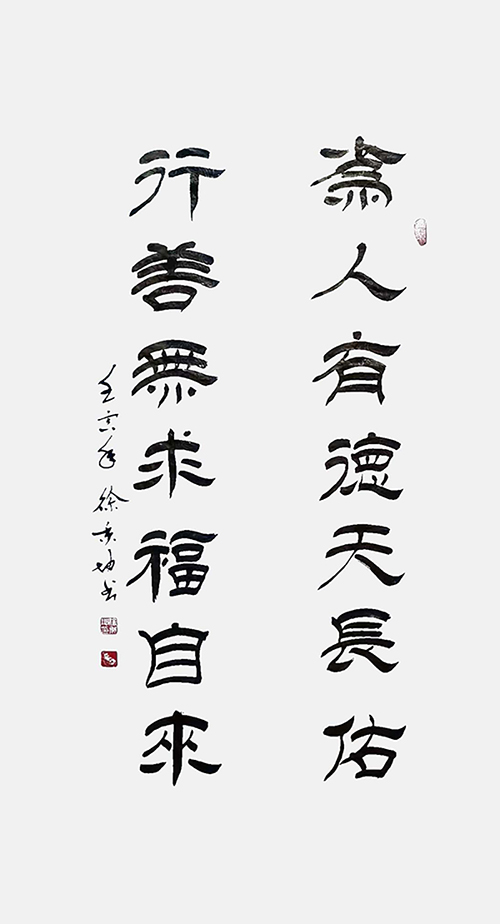 為人有德天長佑
行善無求福自來
壬寅年 徐 坤书